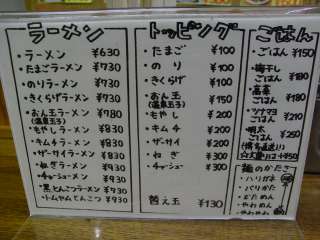 ラーメン
・ラーメン ¥630
・たまごラーメン ¥730
・のりラーメン ¥730
・きくらげラーメン ¥730
・おん玉ラーメン ¥780
(温泉玉子)
・もやしラーメン ¥830
・キムチラーメン ¥830
・ザーサイラーメン ¥830
・ねぎラーメン ¥930
・チャーシューメン ¥930
・黒とんこつラーメン ¥930
・トムヤムとんこつ ¥930
トッピング
・たまご ¥100
・のり ¥100
・きくらげ ¥100
・おん玉 ¥150
(温泉玉子)
・もやし ¥200
・キムチ ¥200
・ザーサイ ¥200
・ねぎ ¥300
・チャーシュー ¥300
替え玉 ¥130
ごはん
・ごはん ¥150
・梅干し
ごはん ¥180
・高菜
ごはん ¥180
・ツナマヨ
ごはん ¥210
・明太
ごはん ¥250
麺のかたさ
・ハリガネ
・バリかた
・かため
・やわめん